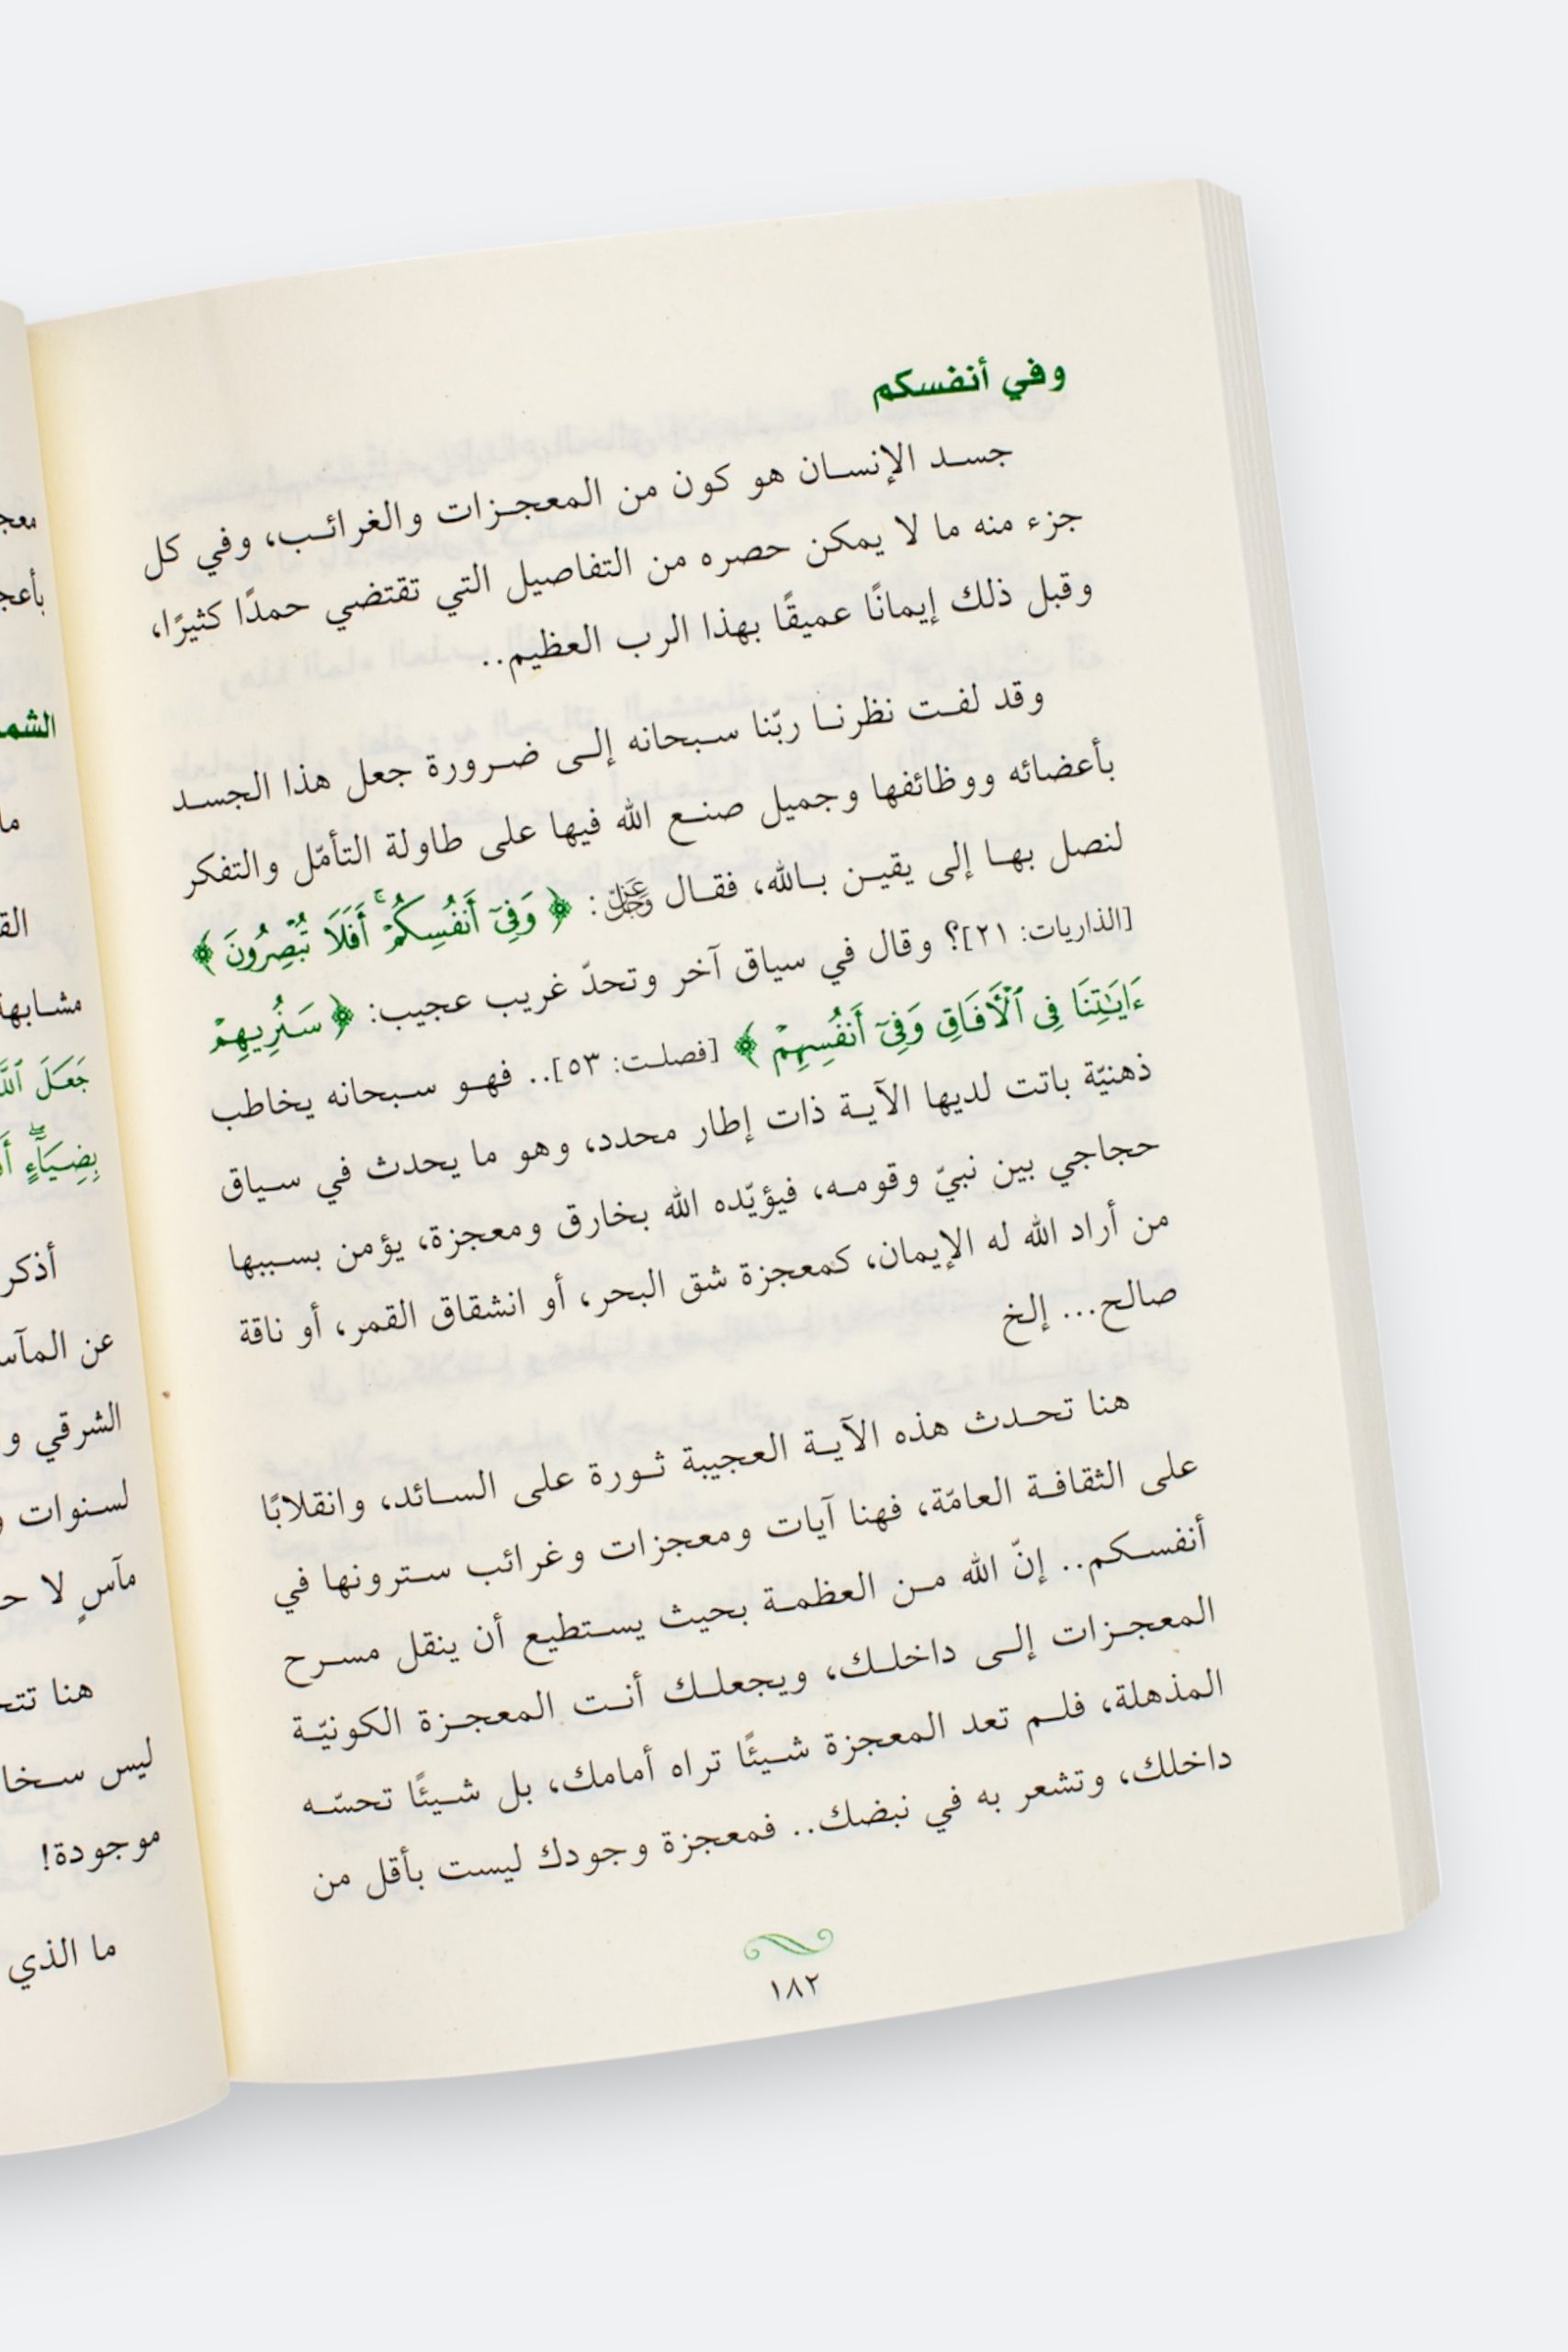 وفي أنفسكم
جسد الإنسان هو كون من المعجزات والغرائب، وفي كل
جزء منه ما لا يمكن حصره من التفاصيل التي تقتضي حمدًا كثيرًا،
وقبل ذلك إيمانًا عميقًا بهذا الرب العظيم..
وقد لفت نظرنا ربّنا سبحانه إلى ضرورة جعل هذا الجسد
بأعضائه ووظائفها وجميل صنع الله فيها على طاولة التأمّل والتفكر
لنصل بها إلى يقين بالله، فقال عَزَّوَجَلَّ: ﴿وَفِيٓ أَنفُسِكُمۡۚ أَفَلَا تُبۡصِرُونَ﴾
[الذاريات: ٢١]؟ وقال في سياق آخر وتحدّ غريب عجيب: ﴿سَنُرِيهِمۡ
ءَايَٰتِنَا فِي ٱلۡأٓفَاقِ وَفِيٓ أَنفُسِهِمۡ﴾ [فصلت: ٥٣].. فهو سبحانه يخاطب
ذهنيّة باتت لديها الآية ذات إطار محدد، وهو ما يحدث في سياق
حجاجي بين نبيّ وقومه، فيؤيّده الله بخارق ومعجزة، يؤمن بسببها
من أراد الله له الإيمان، كمعجزة شق البحر، أو انشقاق القمر، أو ناقة
صالح... إلخ
هنا تحدث هذه الآية العجيبة ثورة على السائد، وانقلابًا
على الثقافة العامّة، فهنا آيات ومعجزات وغرائب سترونها في
أنفسكم.. إنّ الله من العظمة بحيث يستطيع أن ينقل مسرح
المعجزات إلى داخلك، ويجعلك أنت المعجزة الكونيّة
المذهلة، فلم تعد المعجزة شيئًا تراه أمامك، بل شيئًا تحسّه
داخلك، وتشعر به في نبضك.. فمعجزة وجودك ليست بأقل من
١٨٢
مشابهة
جَعَلَ
بِضِيَآءٍۚ
أذكر
عن
الشرقي و
لسنوات
مآسٍ لا
هنا
ليس
موجودة!
ما الذي